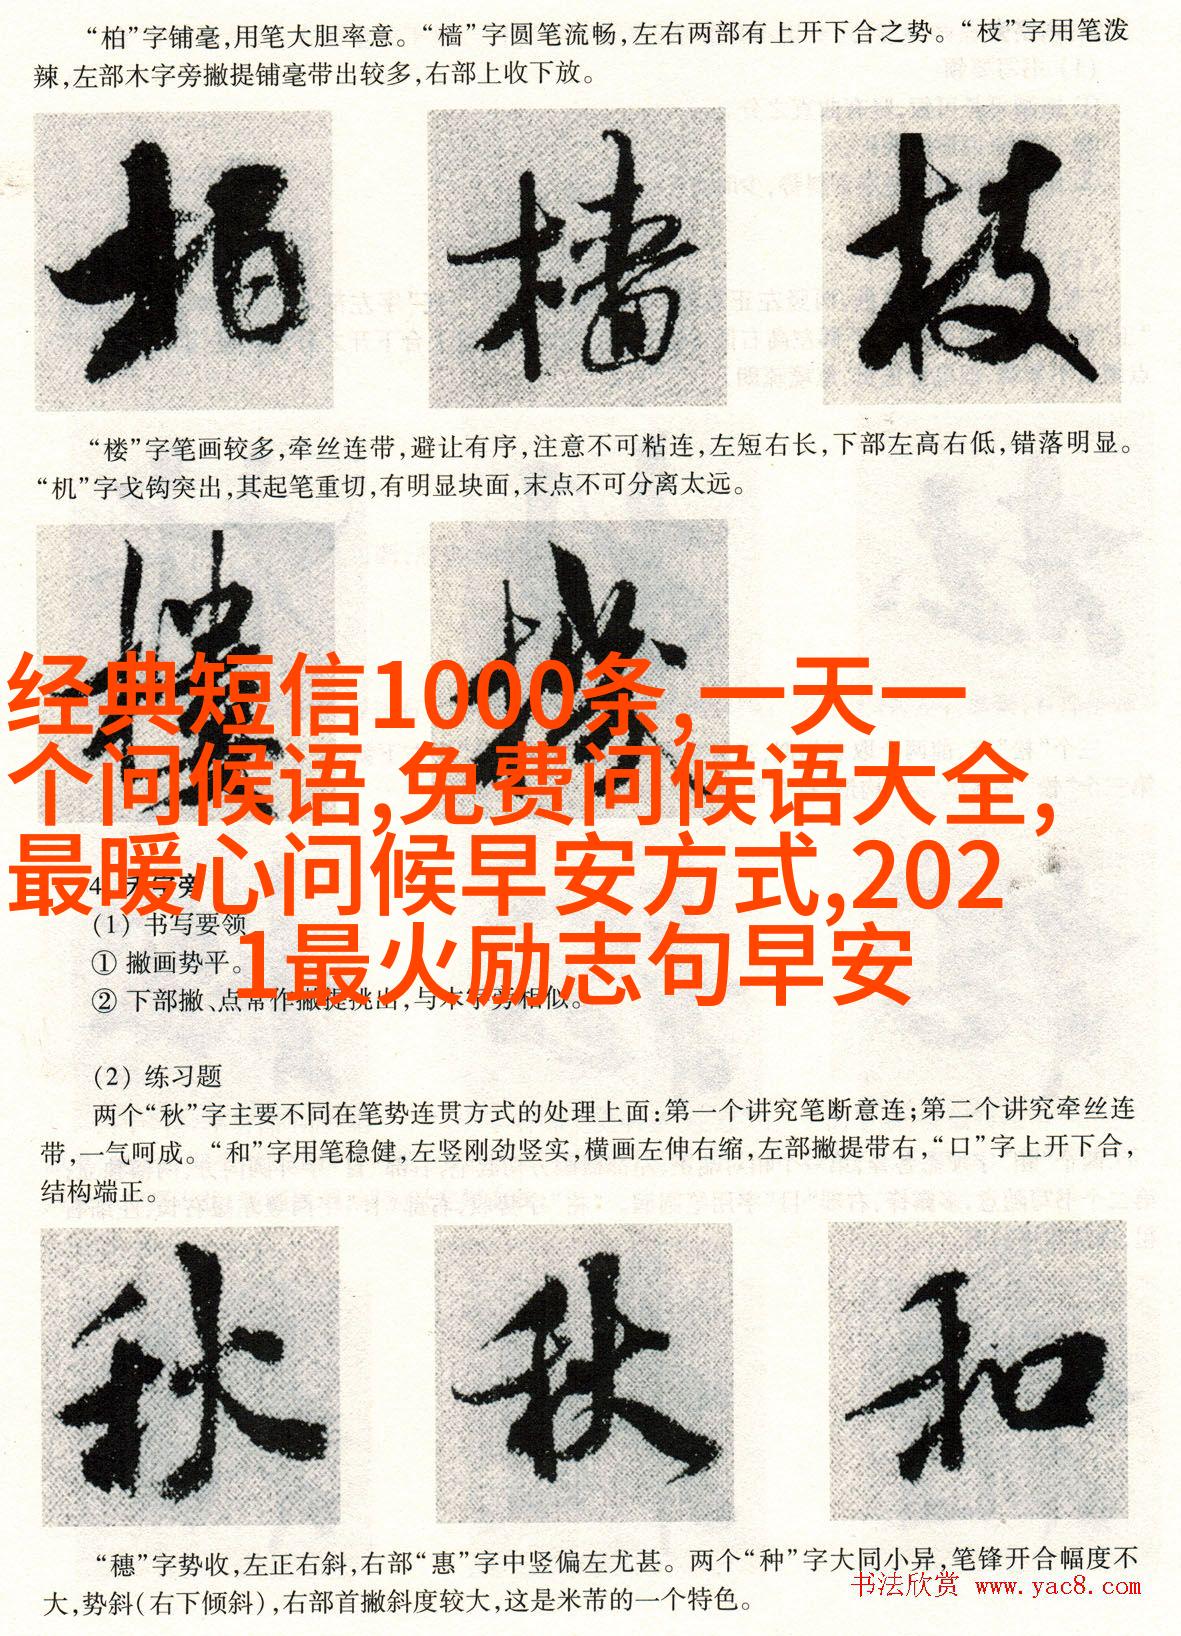 “柏”字铺毫,用笔大胆率意。“樯”字圆笔流畅,左右两部有上开下合之势。“枝”字用笔泼
辣,左部木字旁撇提铺毫带出较多,右部上收下放。
柏 樯 枝
“楼”字笔画较多,牵丝连带,避让有序,注意不可粘连,左短右长,下部左高右低,错落明显。
“机”字戈钩突出,其起笔重切,有明显块面,末点不可分离太远。
经典短信1000条,一天一
个问候语,免费问候语大全,
最暖心问候早安方式,202
1最火励志句早安
(1) 书写要领
① 撇画势平。
② 下部撇、点常作撇提挑出,与木字旁相似。
(2) 练习题
两个“秋”字主要不同在笔势连贯方式的处理上面:第一个讲究笔断意连;第二个讲究牵丝连
带,一气呵成。“和”字用笔稳健,左竖刚劲竖实,横画左伸右缩,左部撇提带右,“口”字上开下合,
结构端正。
秋 秋 和
“穗”字势收,左正右斜,右部“惠”字中竖偏左尤甚。两个“种”字大同小异,笔锋开合幅度不
大,势斜(右下倾斜),右部首撇斜度较大,这是米芾的一个特色。
书法欣赏 www.yac8.com